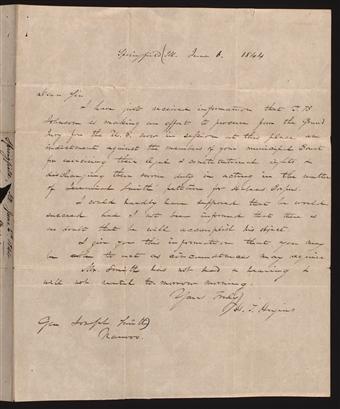 Springfield Ill. June 6. 1844
Dear Sir
I have just received information that T. B.
Johnson is making an effort to procure from the Grand
Jury for the U. S. now in session at this place an
indictment against the members of your municipal Court
for exercising their legal & constitutional rights &
discharging their sworn duty in acting in the matter
of Jeremiah Smiths' petition for Habeas Corpus.
I would hardly have supposed that he would
succeed had I not been informed that there is
no doubt that he will accomplish his object.
I give you this information that you may
be able to act as circumstances may require
Mr. Smith has not had a hearing &
will not until to morrow morning.
Yours Truly
J. Higbee
Gen Joseph Smith
Nauvoo.